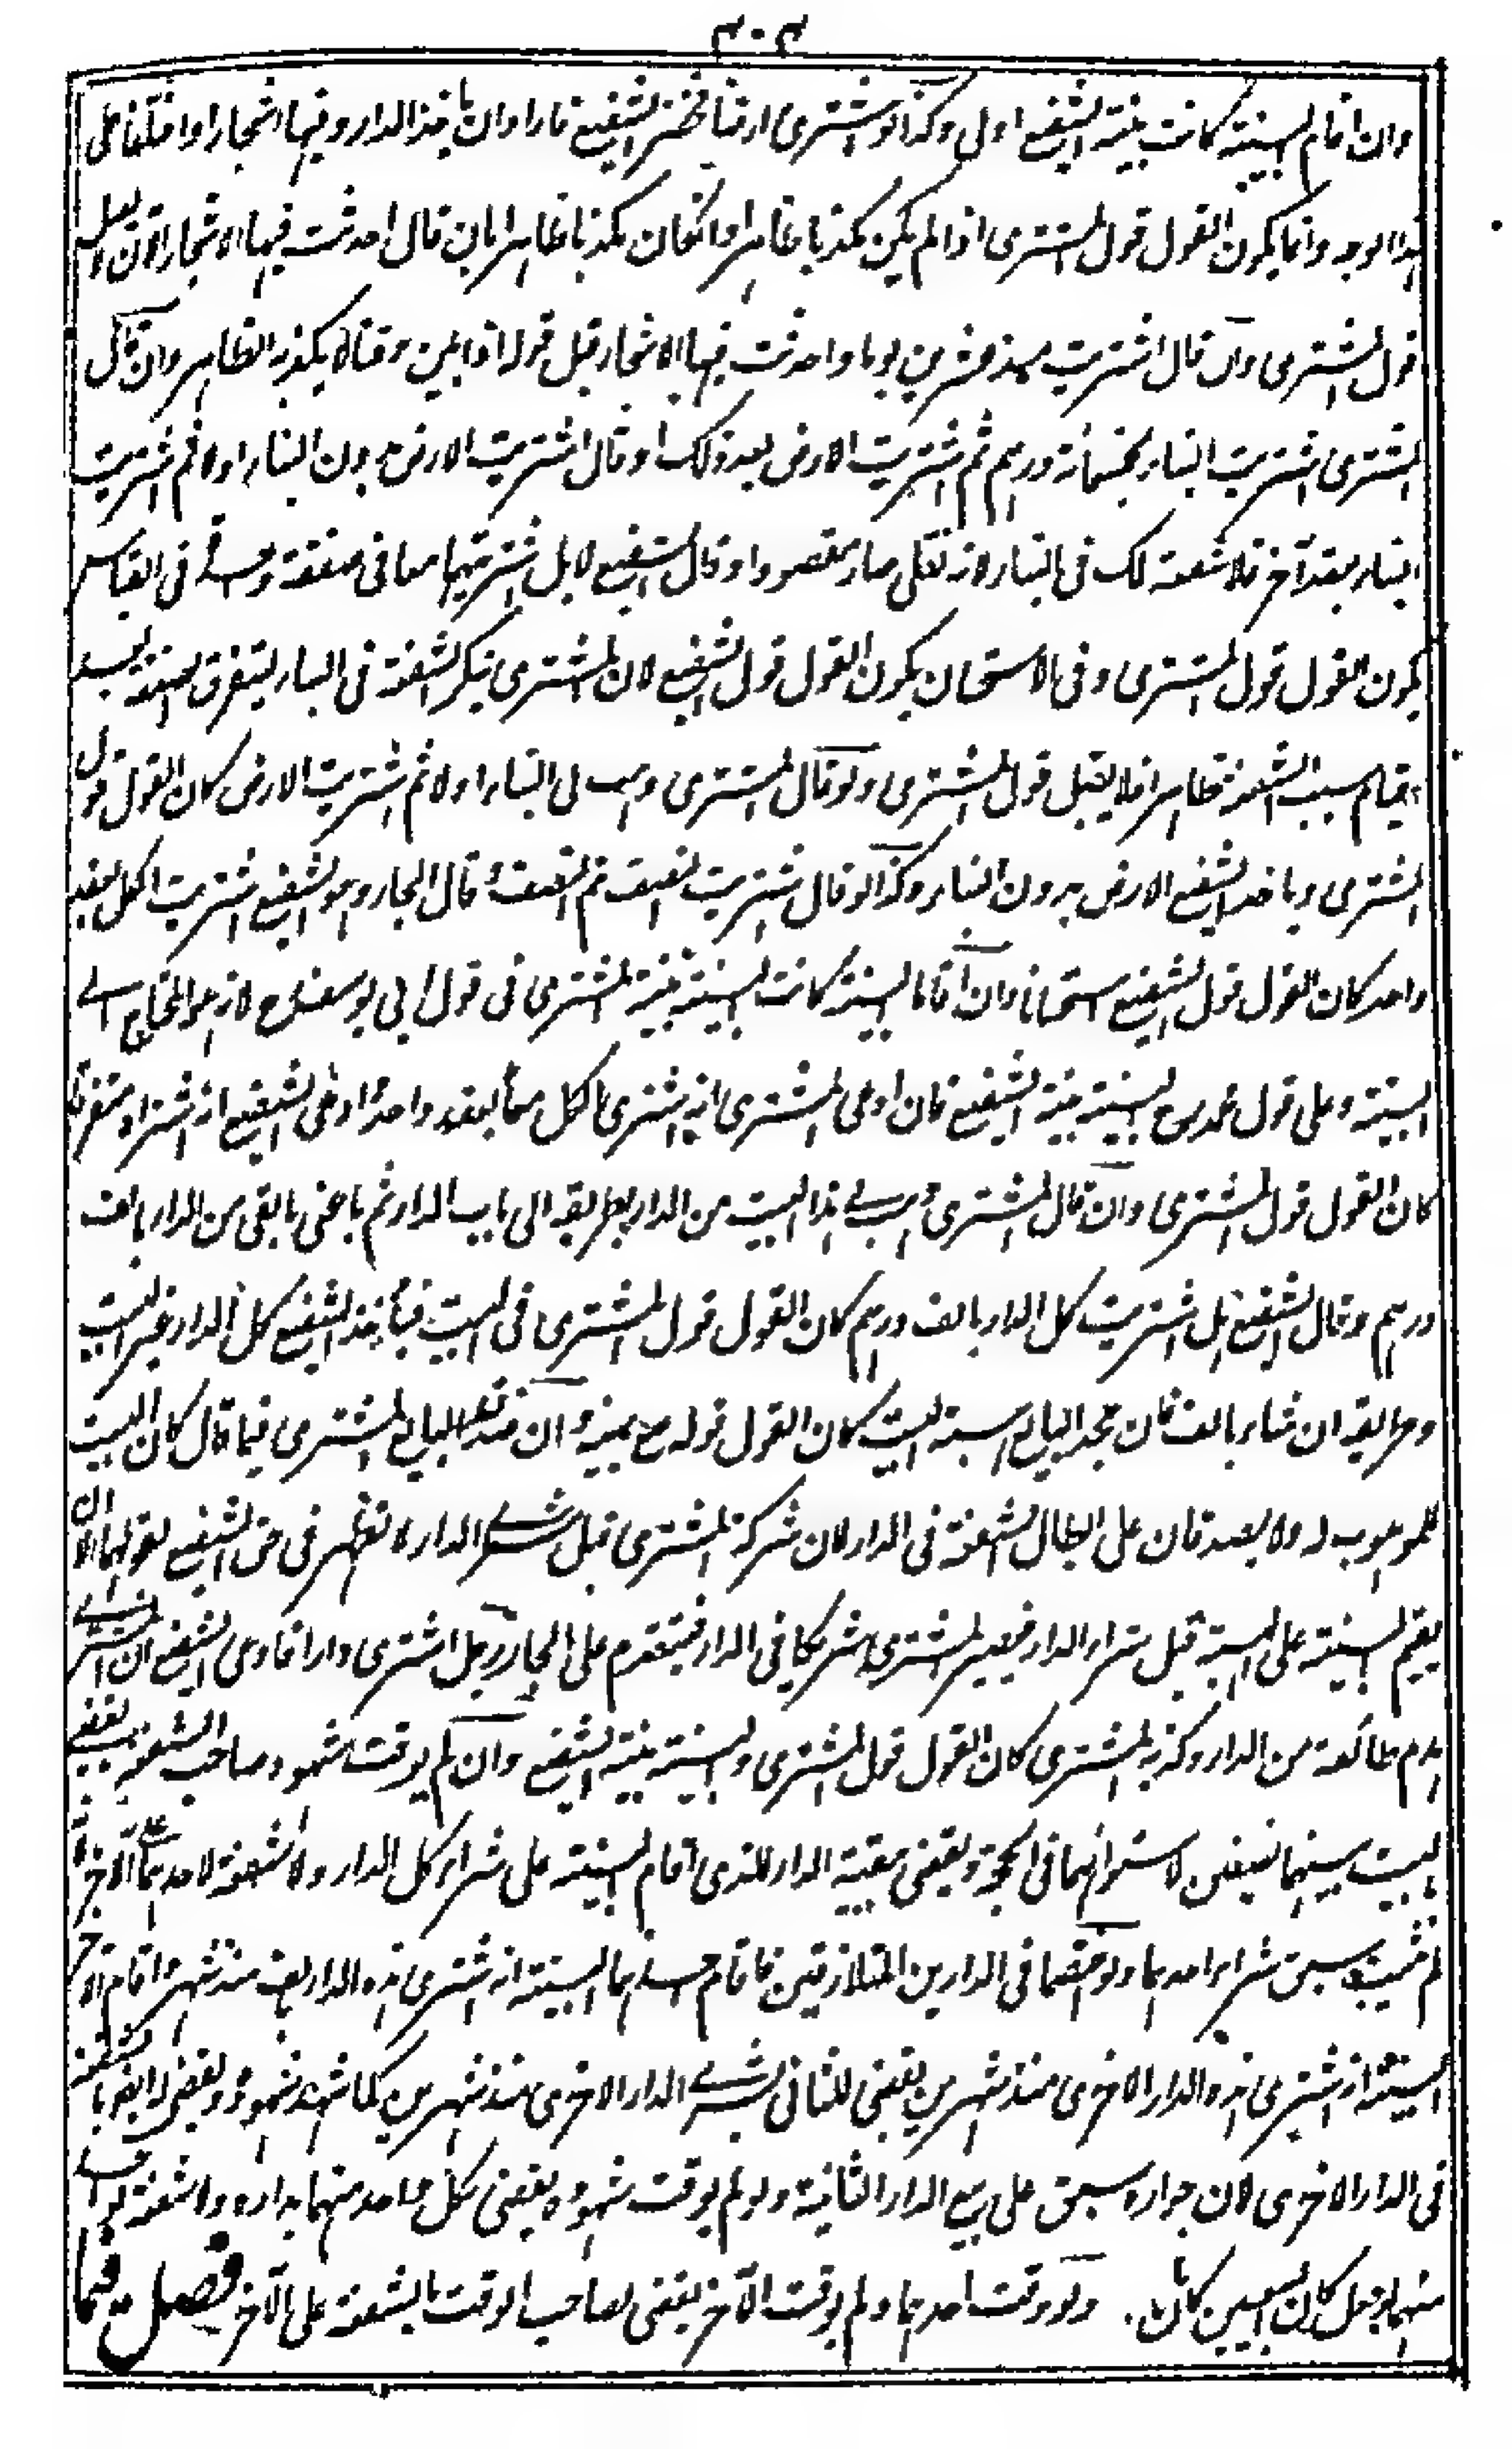 ٣٠٣
وان اقام البينة كانت بينة الشفيع اولى وكذا لو اشترى ارضا فحضر الشفيع فاراد ان ياخذ الدار وفيها اشجار او اختلفا على
هذا الوجه وانما يكون القول قول المشترى اذا لم يكن مكذبا ظاهرا واذا كان مكذبا ظاهرا بان قال احدثت فيها الاشجار الآن لا يقبل
قول المشترى وان قال اشتريت منذ عشرين يوما واحدثت فيها الاشجار قبل قوله اذا بين وقتا لا يكذبه الظاهر وان قال
المشترى اشتريت البناء بخمسمائة درهم ثم اشتريت الارض بعد ذلك او قال اشتريت الارض بدون البناء اولا ثم اشتريت
البناء بعقد آخر فلا شفعة لك فى البناء لانه نقلى صار مقصودا وقال الشفيع لا بل اشتريتهما معا فى صفقة واحدة فى القياس
يكون القول قول المشترى وفى الاستحسان يكون القول قول الشفيع لان المشترى ينكر الشفعة فى البناء بتفرق الصفقة بعد
قيام سبب الشفعة ظاهرا فلا يقبل قول المشترى ولو قال المشترى وهب لى البناء اولا ثم اشتريت الارض كان القول قول
المشترى وياخذ الشفيع الارض بدون البناء وكذا لو قال اشتريت النصف ثم النصف وقال الجار وهو الشفيع اشتريت الكل بعقد
واحد كان القول قول الشفيع استحسانا وان اقاما البينة كانت البينة بينة المشترى فى قول ابى يوسف رح لانه هو المحتاج الى
البينة وعلى قول محمد رح البينة بينة الشفيع فان ادعى المشترى انه اشترى الكل معا بعقد واحد وادعى الشفيع انه اشتراه متفرقا
كان القول قول المشترى وان قال المشترى وهب لى هذا البيت من الدار بطريقه الى باب الدار ثم باعنى ما بقى من الدار بالف
درهم وقال الشفيع بل اشتريت كل الدار بالف درهم كان القول قول المشترى فى البيت فيأخذ الشفيع كل الدار غير البيت
وطريقه ان شاء بالف فان جحد البائع هبة البيت كان القول قوله مع يمينه وان صدق البائع المشترى فيما قال كان البيت
للموهوب له ولا يصدقان على ابطال الشفعة فى الدار لان شركة المشترى قبل شراء الدار لا تظهر فى حق الشفيع بقولهما الا ان
يقيم البينة على الهبة قبل شراء الدار فيصير المشترى شريكا فى الدار فيتقدم على الجار رجل اشترى دارا فادعى الشفيع ان المشترى
هدم طائفة من الدار وكذبه المشترى كان القول قول المشترى والبينة بينة الشفيع وان لم يوقت شهود صاحب الشفعة يقضى
بالبيت بينهما نصفين لاستوائهما فى الحجة ويقضى ببقية الدار للذى اقام البينة على شراء كل الدار ولا شفعة لاحدهما على الآخر لانه
لم يثبت سبق شراء احدهما ولو اختصما فى الدارين المتلازقتين فاقام احدهما البينة انه اشترى هذه الدار بالف منذ شهر واقام الآخر
البينة انه اشترى هذه الدار الاخرى منذ شهرين يقضى للثانى بشراء الدار الاخرى منذ شهرين كما شهد شهوده ويقضى له ايضا بالشفعة
فى الدار الاخرى لان جواره سبق على بيع الدار الثانية ولو لم يوقت شهوده يقضى لكل واحد منهما بداره ولا شفعة لواحد
منهما لجعل كان البيعين كانا معا. ولو وقت احدهما ولم يوقت الآخر يقضى لصاحب الوقت بالشفعة على الآخر فصل فيما